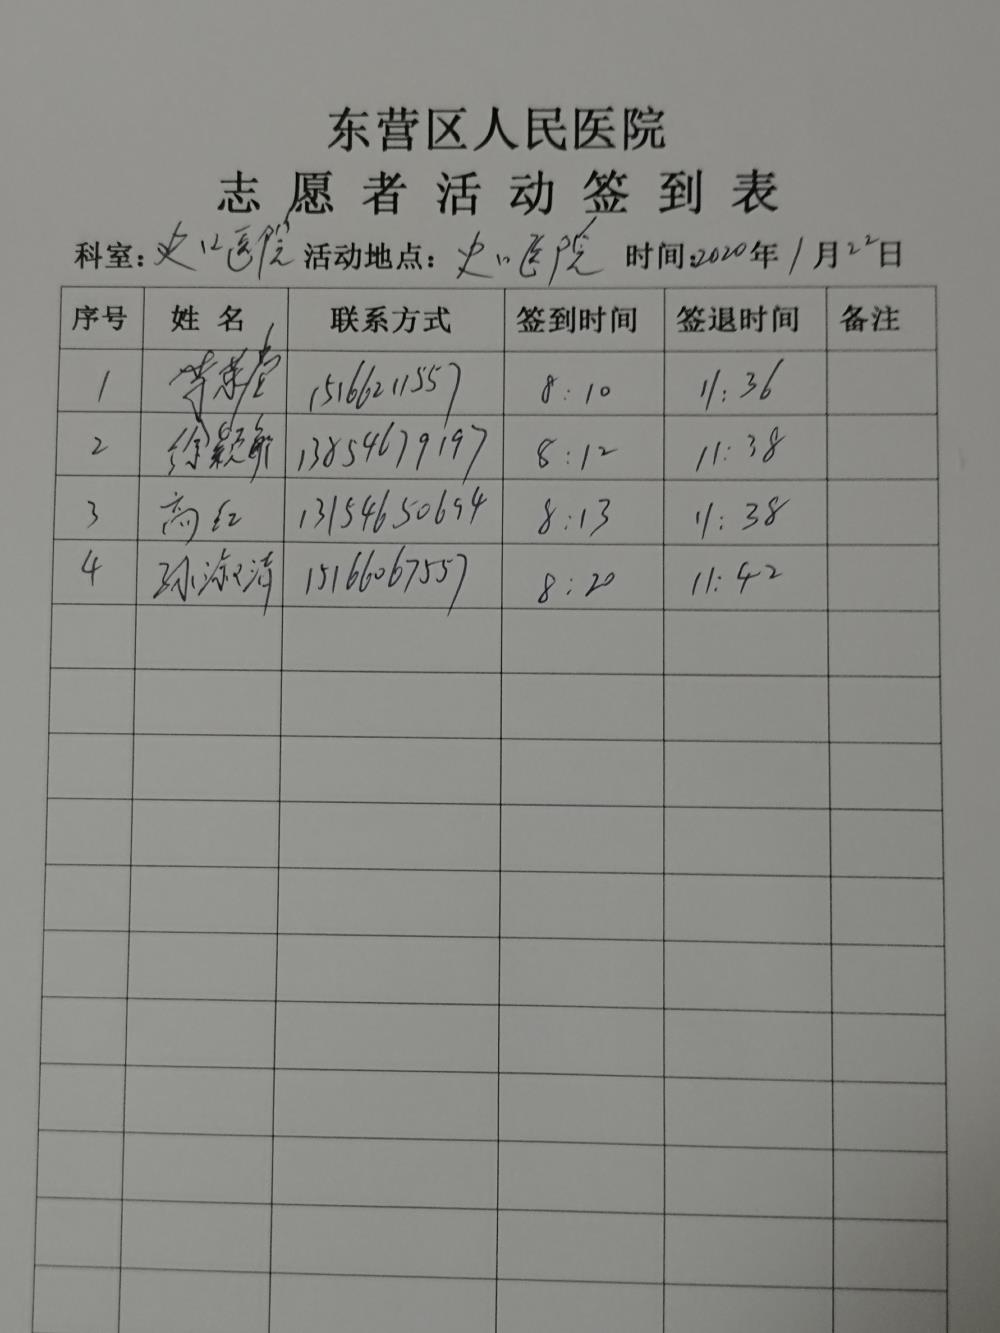 东营区人民医院
志愿者活动签到表
科室:史口医院 活动地点:史口医院 时间:2020年1月22日
序号 姓名 联系方式 签到时间 签退时间 备注
1 15166211557 8:10 11:36
2 徐颖敏 13854679197 8:12 11:38
3 高红 13154650694 8:13 11:38
4 孙淑清 15166067557 8:20 11:42